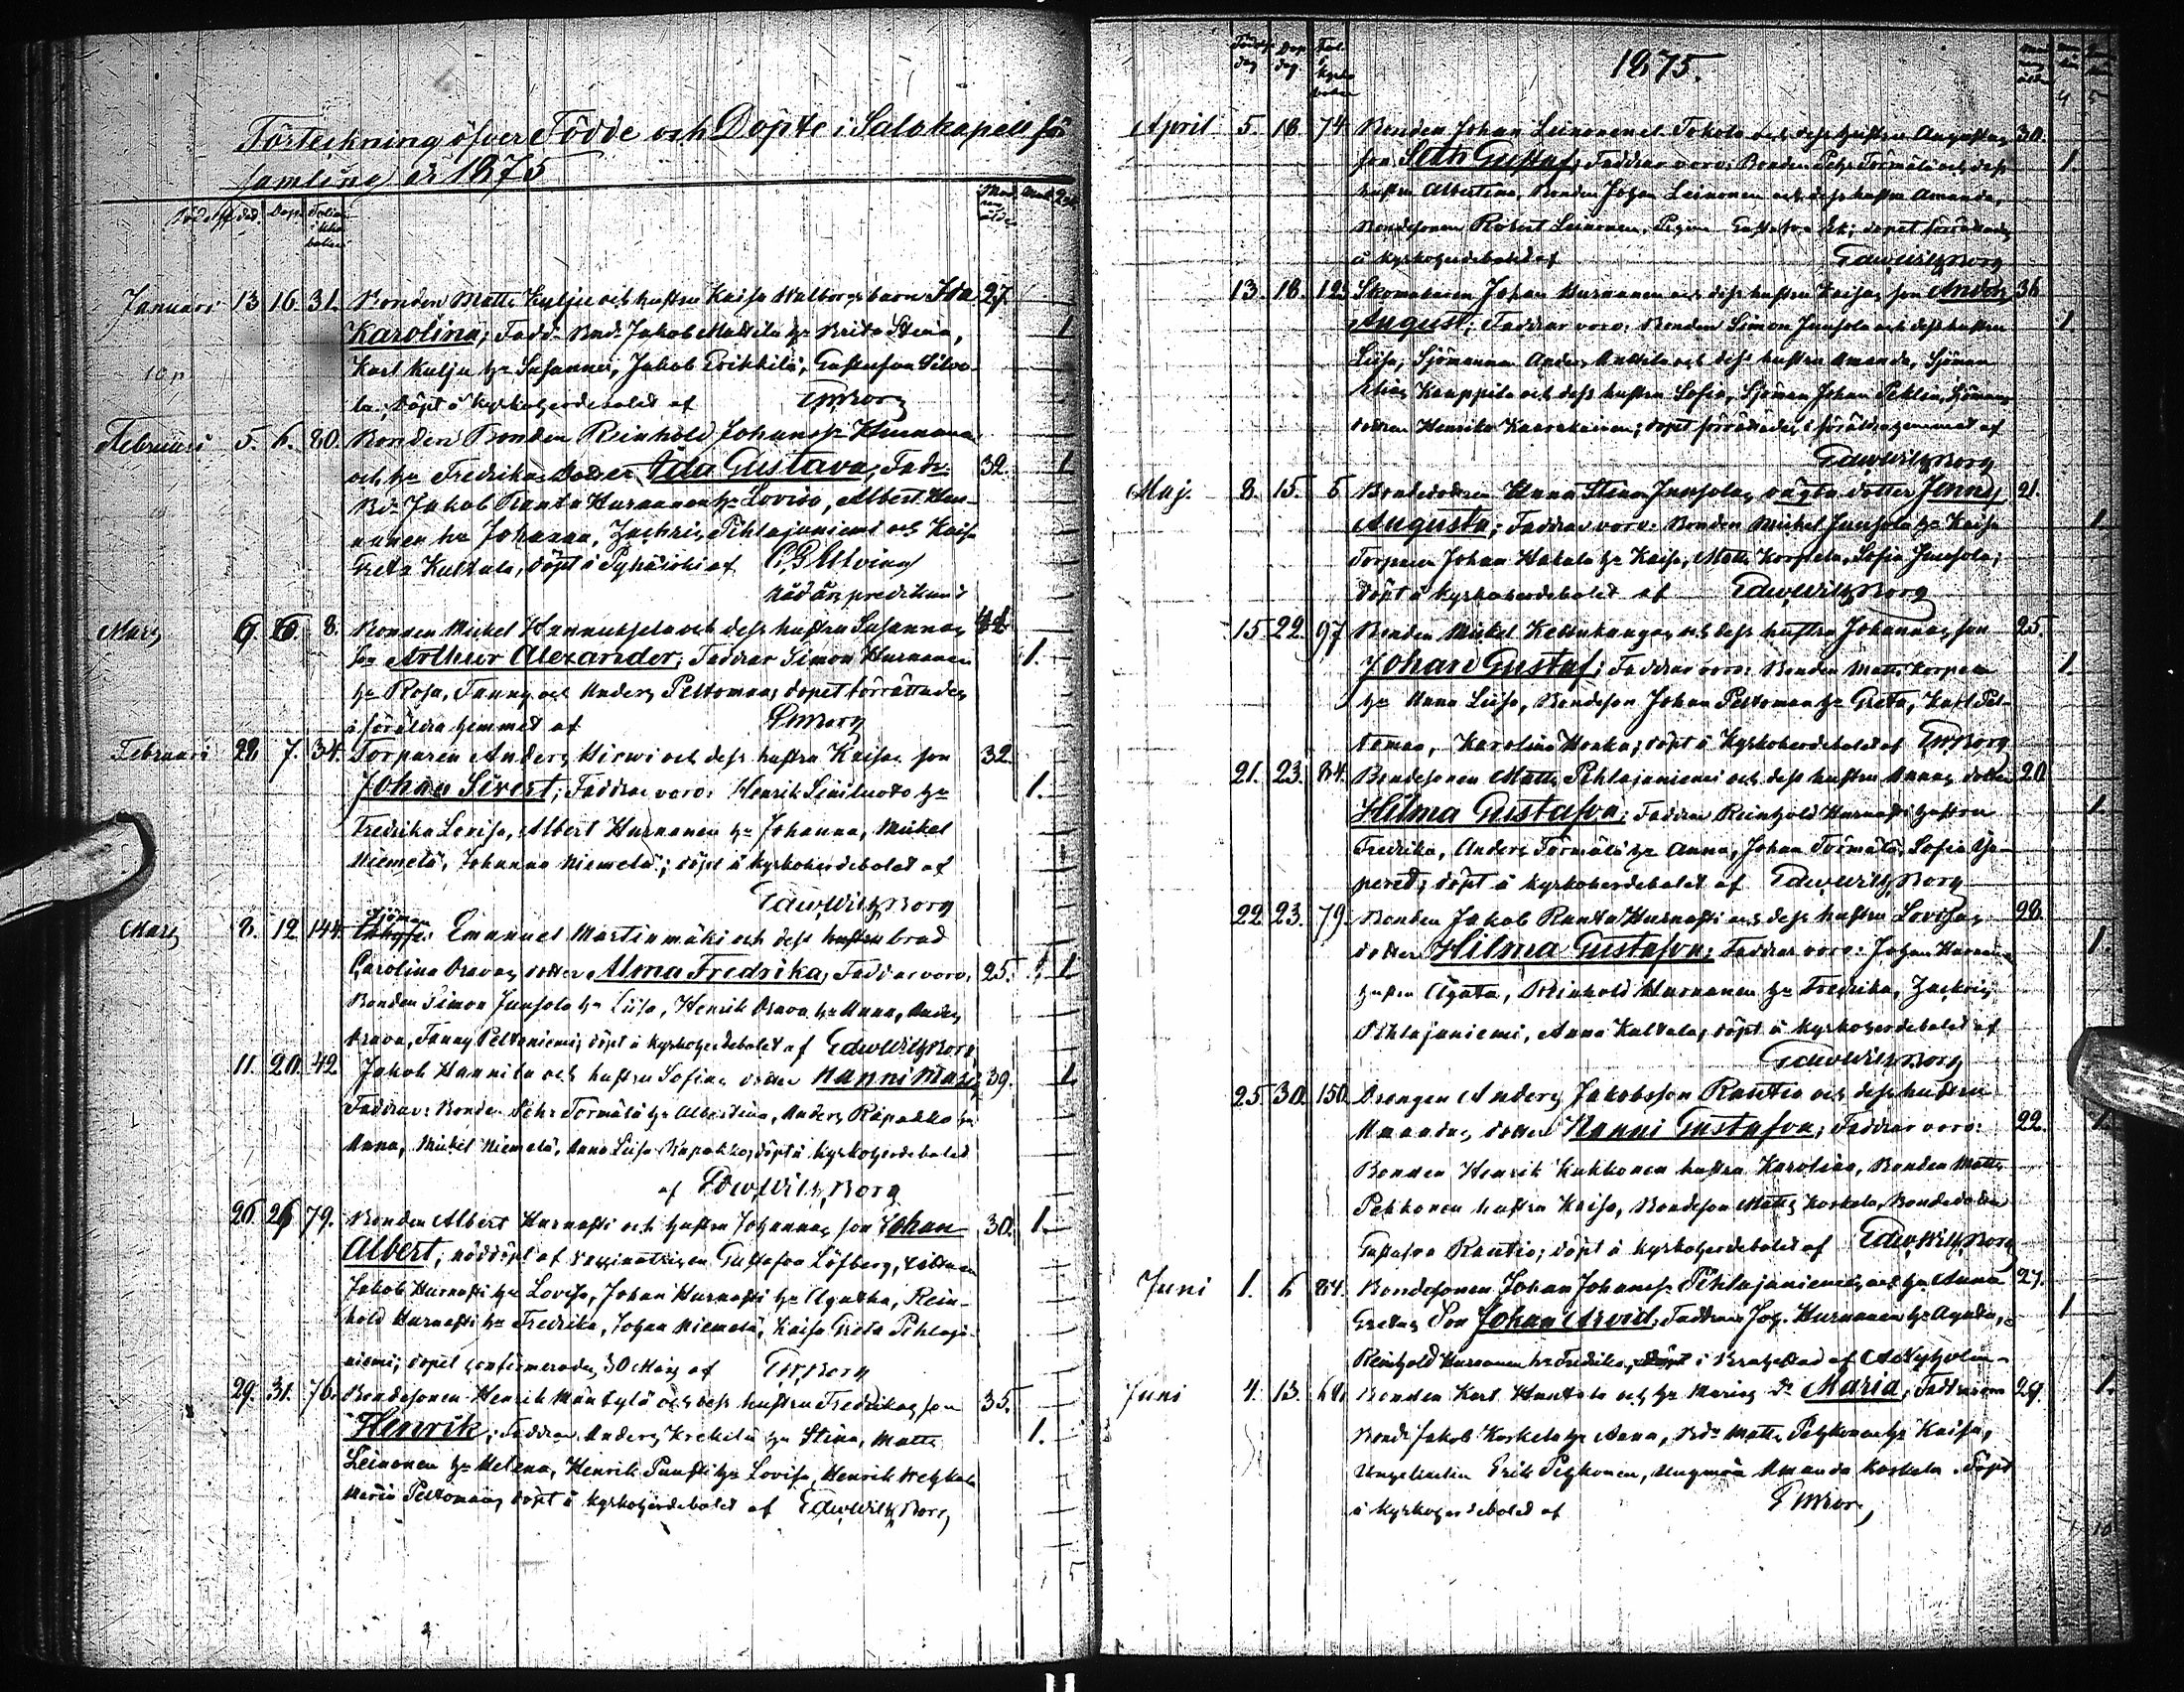 Förteckning öfver Födde och Döpte i Salo kapell för
samling år 1875
Januari 13 16. 31. Bonden Matts Kulju och hustru Kaisa Walborgs barn Ida 27.
Karolina; Fadd. Bnd. Jakob Mattila hu Brita Stina, 1
Karl Kulju hu Susanna, Jakob Erikkilä, Gustafva
la; döpt å kyrkoherdebolet af EWBorg
Februari 5. 6. 80. Bonden Reinhold Johanss. Hurnanen
och hu Fredrikas dotter Ida Gustava, Fadd. 32. 1
Bd. Jakob Ranta Hurnanen hu Lovisa, Albert Hur-
nanen hu Johanna, Zachris Pihlajaniemi och Kaisa
Greta Kultala, döpt i Pyhäjoki af
nådårspredikant
Mars 8. Bonden Mickel Hannuksela och dess hustru Susannas
Arthur Alexander; Faddrar Simon Hurnanen 1.
hu Rosa, Fanny och Anders Peltomaa; dopet förrättades
i föräldrahemmet af EWBorg
Februari 28. 7. 34. Torparen Anders Hirwi och dess hustru Kaisas son 32.
Johan Sivert; Faddrar voro: Henrik Siniluoto hu 1.
Fredrika Lovisa, Albert Hurnanen hu Johanna, Mickel
Niemelä, Johanna Niemelä; döpt å kyrkoherdebolet af
Edw. Wilh. Borg
Mars 8. 12 144. Sjöman Emanuel Martinmäki och dess hustru Brod
Carolina Oravas dotter Alma Fredrika; Faddrar voro, 25. 1
Bonden Simon Junsola hu Liisa, Henrik Orava hu Anna, Anders
Orava, Fanny Peltoniemi; döpt å kyrkoherdebolet af Edw. Wilh. Borg
11. 20. 42 Jakob Hannila och hustru Sofias dotter Nanni Maria 39. 1
Faddrar: Bonden Pehr Törmälä hu Albertina, Anders Rapakko hu
Anna, Mickel Niemelä, Anna Liisa Rapakko, döpt å kyrkoherdebolet
af Edw. Wilh. Borg
26. 26 79. Bonden Albert Hurnasti och hustru Johannas son Johan 30. 1.
Albert; nöddöpt af Gustafva Löfberg, vittnen
Jakob Hurnasti hu Lovisa, Johan Hurnasti hu Agatha, Rein-
hold Hurnasti hu Fredrika, Johan Niemelä, Kaisa Greta Pihlaja-
niemi; dopet confirmerades 30 Mars af EWBorg
29. 31. 76. Bondesonen Henrik Mäntylä och dess hustru Fredrikas son 35.
Henrik; Faddrar Anders Krekilä hu Stina, Matts 1.
Leinonen hu Helena, Henrik Punsti hu Lovisa, Henrik
Maria Peltomaa; döpt å kyrkoherdebolet af Edw. Wilh. Borg
1875.
April 5. 18. 74. Bonden Johan Leinonen el. Tokola och dess hustru Augustas 30.
son Seth Gustaf; Faddrar voro: Bonden Pehr Törmälä och dess 1.
hustru Albertina, Bonden Johan Leinonen och dess hustru Amanda,
Bondesonen Robert Leinonen, Pigan Gustafva Ek; dopet förrättades
å kyrkoherdebolet af Edw. Wilh. Borg
13. 18. 123 Skomakaren Johan Hurnanen och dess hustru Kaisas son Anders 36
August; Faddrar voro: Bonden Simon Junsola och dess hustru 1
Liisa, Sjömannen Anders Anttila och dess hustru Amanda, Sjöman
Elias Kauppila och dess hustru Sofia, Sjöman Johan Pehlin, Sjömans
dottren Henrika Kaarakainen; dopet förrättades i föräldrahemmet af
Edw. Wilh. Borg
Maj. 8. 15. 6 Bondedottren Anna Stina Junsolas oägta dotter Jenny 21.
Augusta; Faddrar voro: Bonden Mickel Junsola hu Kaisa 1
Torparen Johan Hakala hu Kaisa, Matts Korpela, Sofia Junsola;
döpt å kyrkoherdebolet af Edw. Wilh. Borg
15. 22. 97 Bonden Mickel Ketunkangas och dess hustru Johannas son 25.
Johan Gustaf; Faddrar voro: Bonden Matts Korpela 1.
hu Anna Liisa, Bondeson Johan Peltomaa hu Greta, Karl Pel-
tomaa, Karolina Honka; döpt å kyrkoherdebolet af EWBorg
21. 23. 84. Bondesonen Matts Pihlajaniemi och dess hustru Annas dotter 20
Hilma Gustafva; Faddrar Reinhold Hurnasti hustru 1.
Fredrika, Anders Törmälä hu Anna, Johan Törmälä, Sofia
döpt å kyrkoherdebolet af Edw. Wilh. Borg
22 23. 79. Bonden Jakob Ranta Hurnasti och dess hustru Lovisas 28.
dotter Hilma Gustafva; Faddrar voro: Johan Hurnanen 1.
hustru Agata, Reinhold Hurnanen hu Fredrika, Zachris
Pihlajaniemi, Anna Kultala; döpt å kyrkoherdebolet af
Edw. Wilh. Borg
25. 30. 150. Drengen Anders Jakobsson Rautio och dess hustru
Amandas dotter Nanni Gustafva; Faddrar voro: 22. 1.
Bonden Henrik Kukkonen hustru Karolina, Bonden Matts
Pekkonen hustru Kaisa, Bondeson Matts Koskela, Bondedotter
Gustafva Rautio; döpt å kyrkoherdebolet af Edw. Wilh. Borg
Juni 1. 6 84. Bondesonen Johan Johanss. Pihlajaniemi och hu Anna 27.
Gretas Son Johan Arvid, Faddrar: Joh. Hurnanen hu Agata, 1
Reinhold Hurnanen hu Fredrika, döpt i Brahestad af
Juni 4. 13. Bonden Karl Hautala och hu Marias dr Maria; Faddrar 29. 1.
Bond. Jakob Koskela hu Anna, Bdn Matts Pehkonen hu Kaisa,
Ungkarlen Erik Pehkonen, Ungmön Amanda Koskela. Döpt
å kyrkoherdebolet af EWBorg